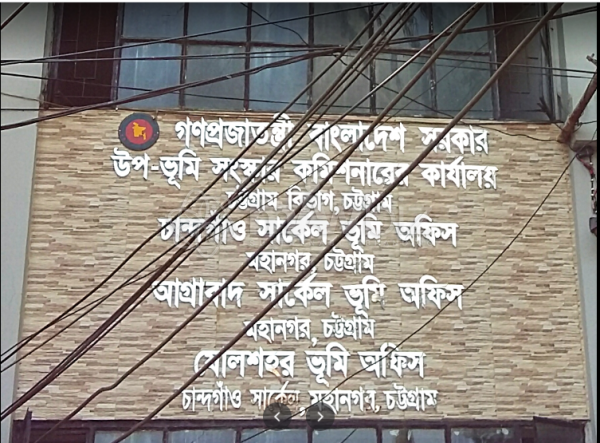 গণপ্রজাতন্ত্রী বাংলাদেশ সরকার
উপ-ভূমি সংস্কার কমিশনারের কার্যালয়
চট্টগ্রাম বিভাগ, চট্টগ্রাম
চান্দগাঁও সার্কেল ভূমি অফিস
মহানগর, চট্টগ্রাম
আগ্রাবাদ সার্কেল ভূমি অফিস
মহানগর, চট্টগ্রাম
ষোলশহর ভূমি অফিস
চান্দগাঁও সার্কেল, মহানগর, চট্টগ্রাম